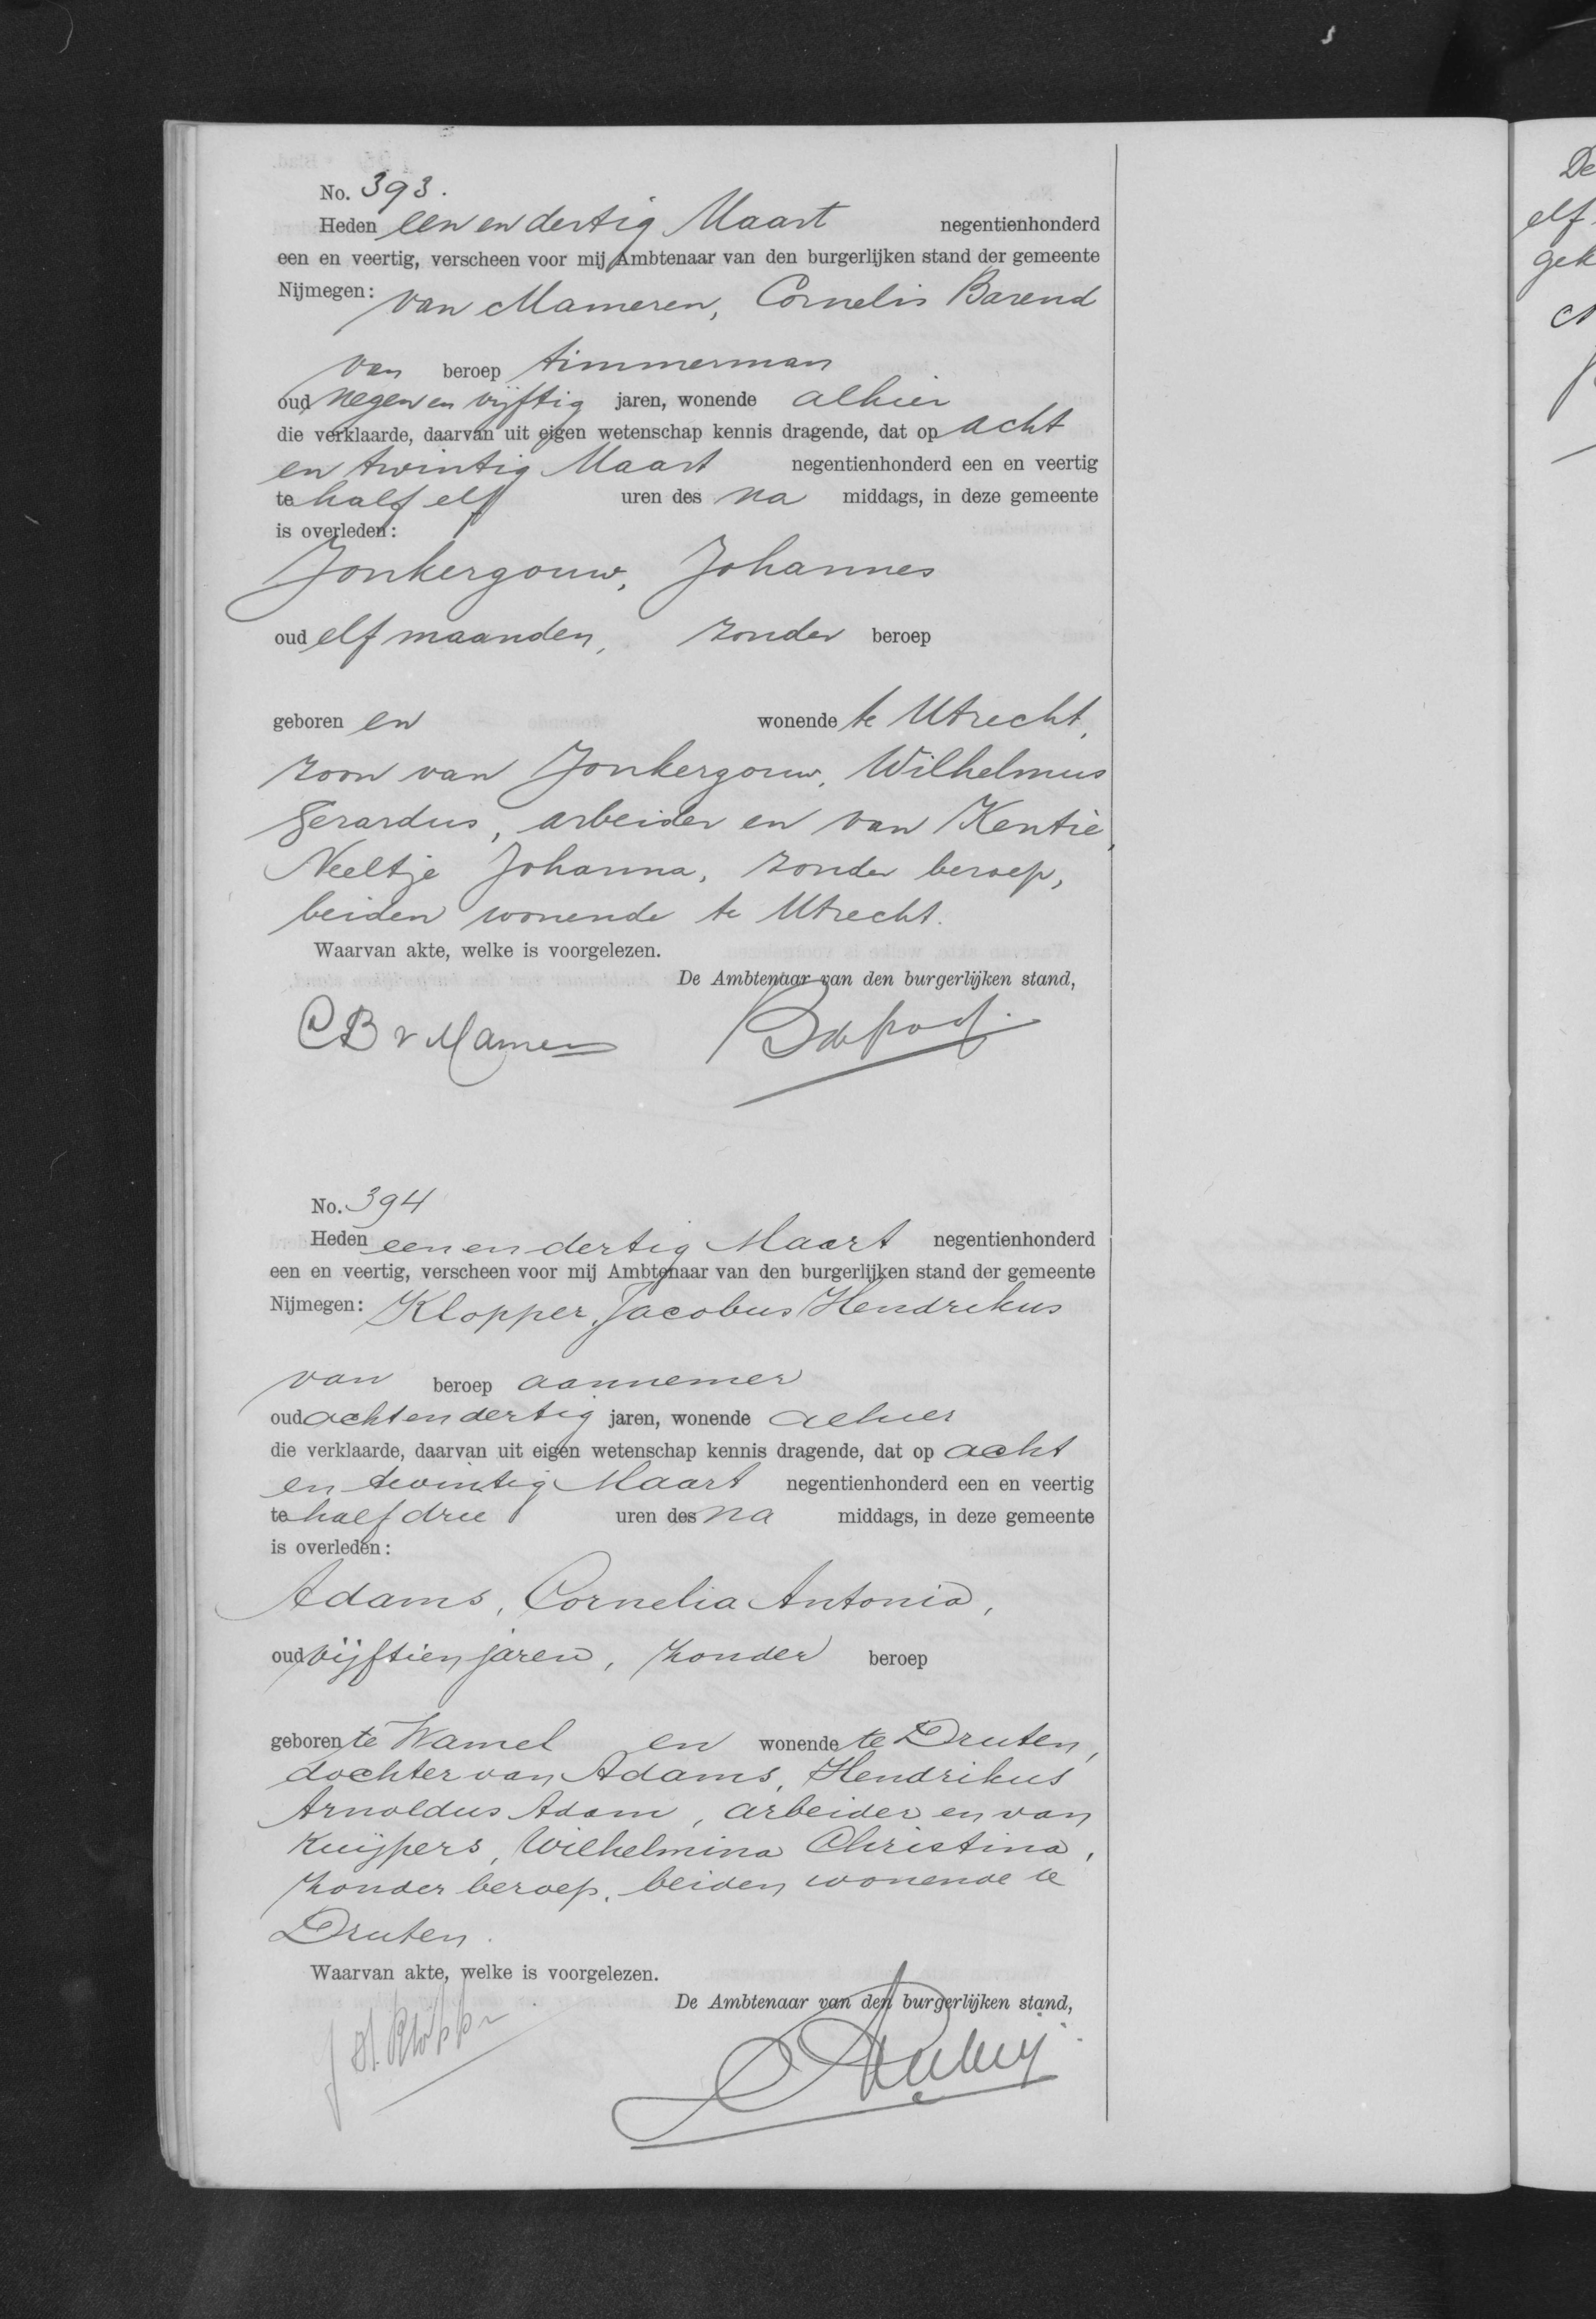 No. 393.
Heden een en dertig Maart negentienhonderd
een en veertig, verscheen voor mij Ambtenaar van den burgerlijken stand der gemeente
Nijmegen: van Mameren, Cornelis Barend
van beroep timmerman
oud negen en vijftig jaren, wonende alhier
die verklaarde, daarvan uit eigen wetenschap kennis dragende, dat op acht
en twintig Maart negentienhonderd een en veertig
te half elf uren des na middags, in deze gemeente
is overleden:
Jonkergouw, Johannes
oud elf maanden, zonder beroep
geboren en wonende te Utrecht,
zoon van Jonkergouw, Wilhelmus
Gerardus, arbeider en van Kentie,
Neeltje Johanna, zonder beroep,
beiden wonende te Utrecht.
Waarvan akte, welke is voorgelezen.
De Ambtenaar van den burgerlijken stand,
CB v Mameren
No. 394
Heden een en dertig Maart negentienhonderd
een en veertig, verscheen voor mij Ambtenaar van den burgerlijken stand der gemeente
Nijmegen: Klopper, Jacobus Hendrikus
van beroep aannemer
oud acht en dertig jaren, wonende alhier
die verklaarde, daarvan uit eigen wetenschap kennis dragende, dat op acht
en twintig Maart negentienhonderd een en veertig
te half drie uren des na middags, in deze gemeente
is overleden:
Adams, Cornelia Antonia,
oud vijftien jaren, zonder beroep
geboren te Wamel en wonende te Druten,
dochter van Adams, Hendrikus
Arnoldus Adam, arbeider en van
Kuijpers, Wilhelmina Christina,
zonder beroep, beiden wonende te
Druten.
Waarvan akte, welke is voorgelezen.
De Ambtenaar van den burgerlijken stand,
J H. Klopper
De
elf
gek